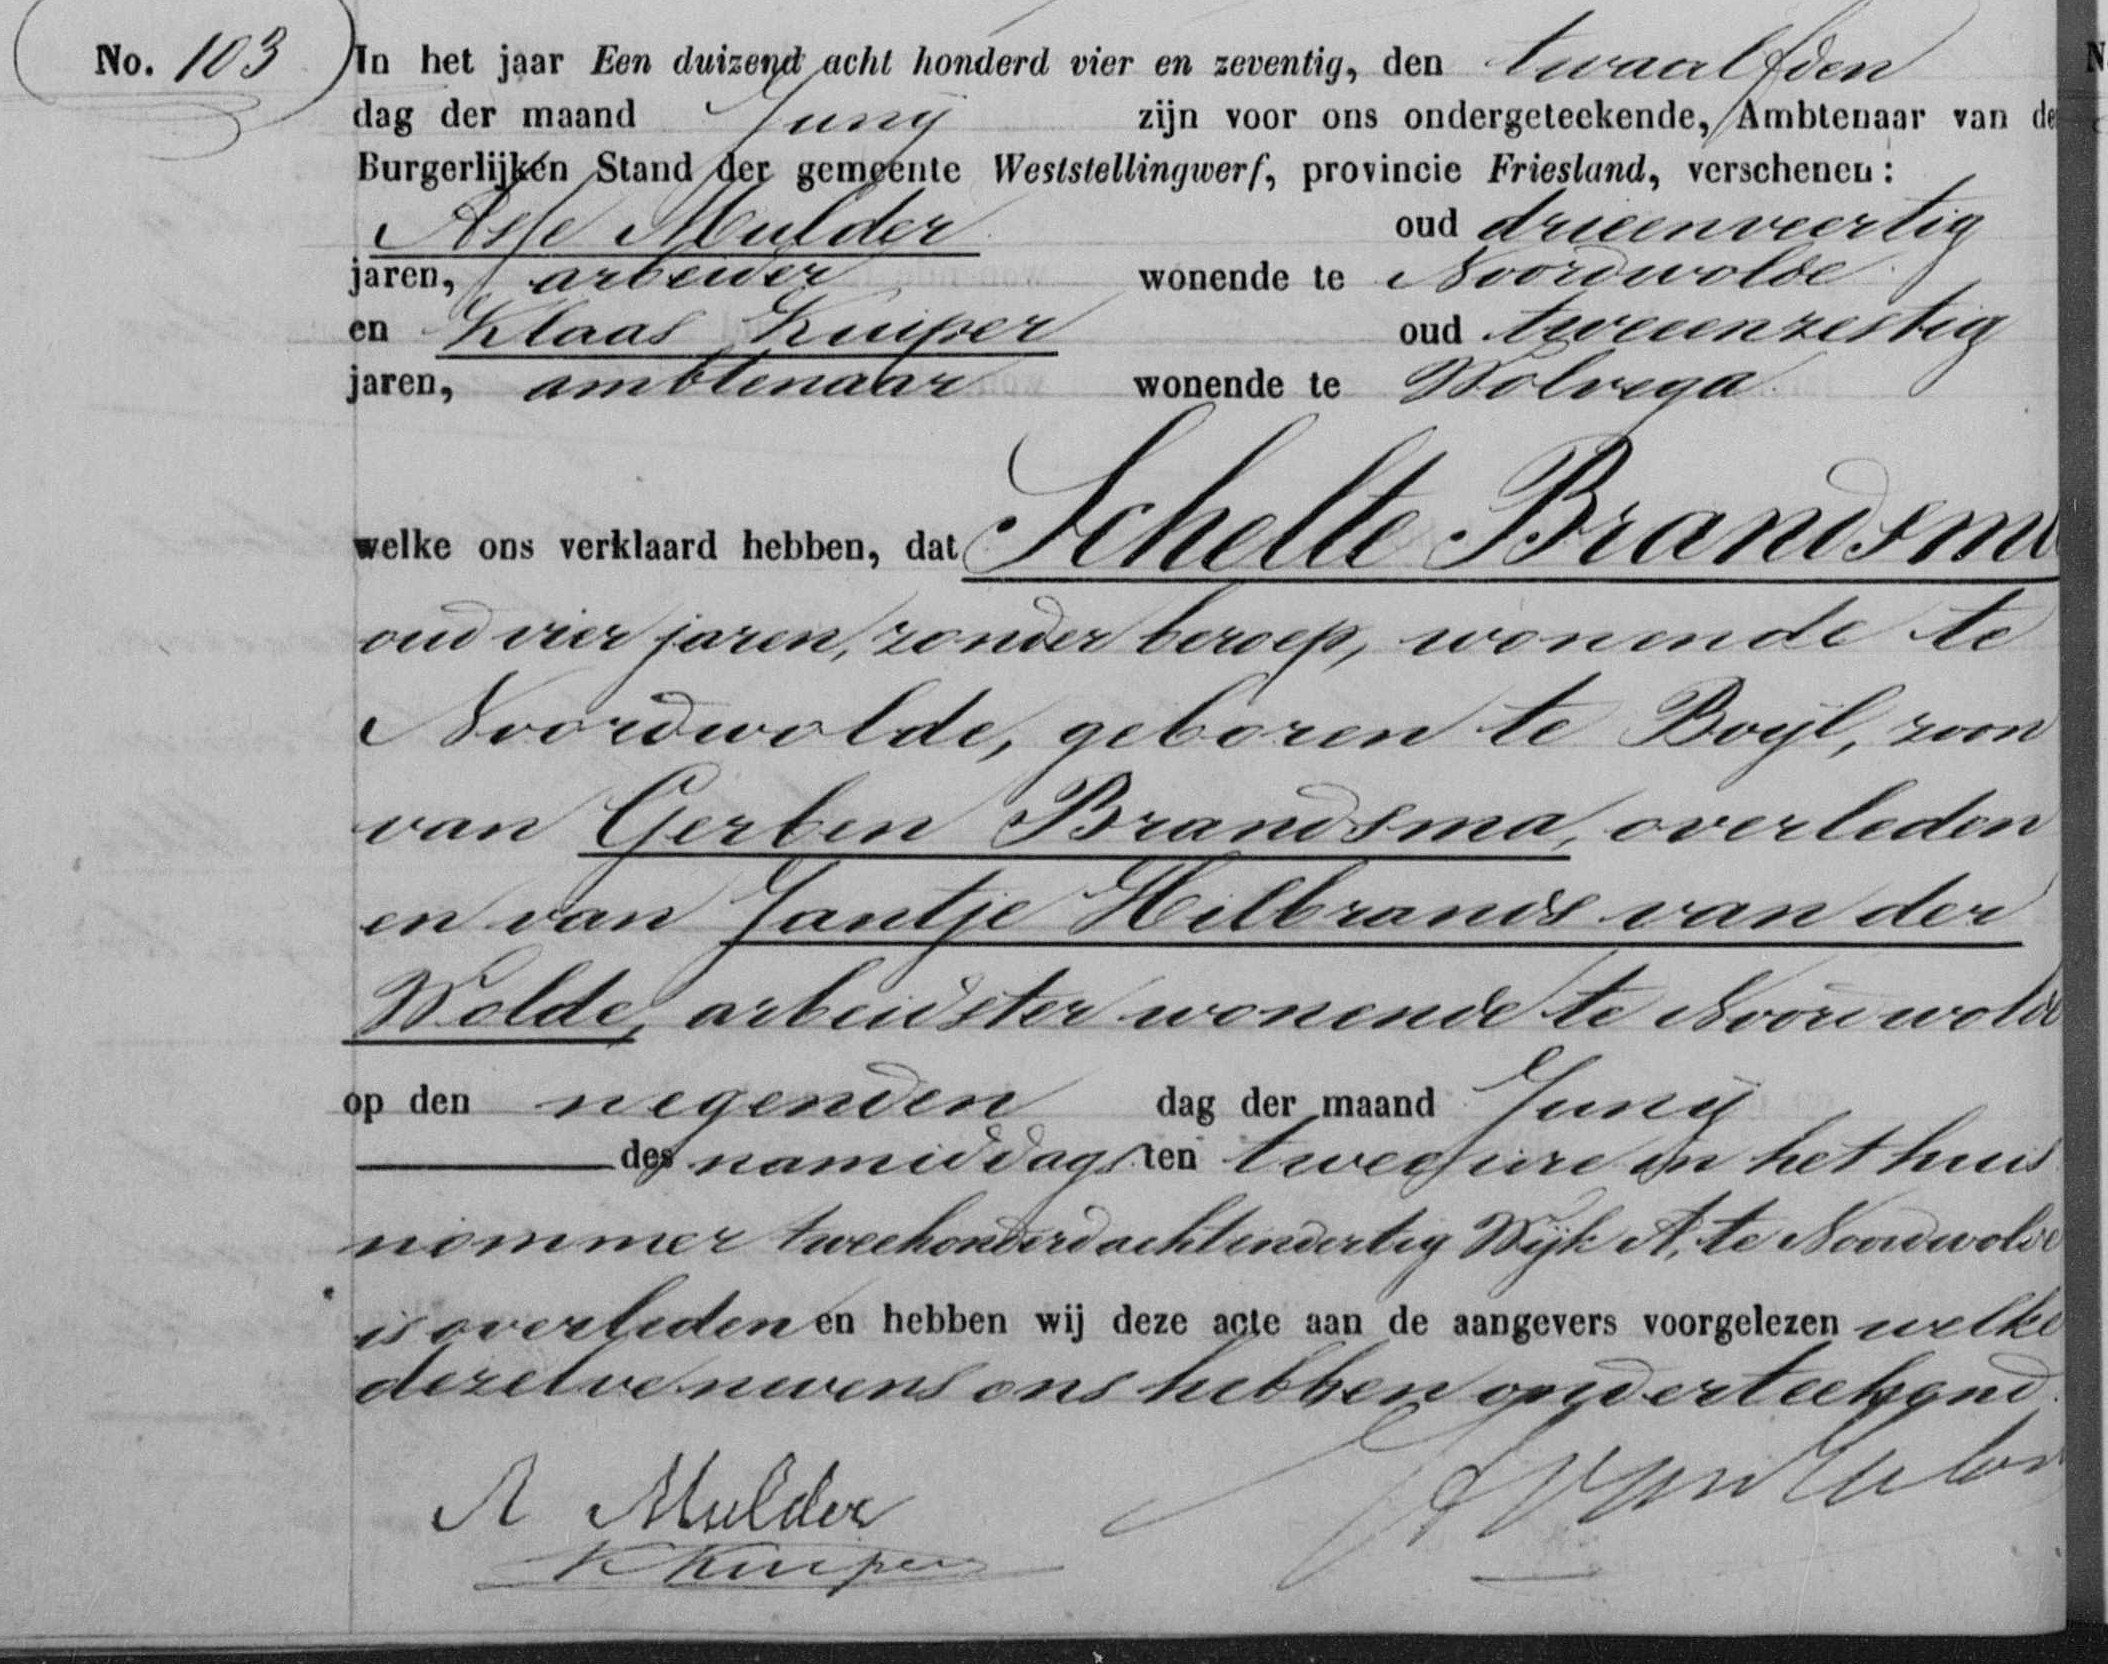 No. 103 In het jaar Een duizend acht honderd vier en zeventig, den twaalfden
dag der maand Junij zijn voor ons ondergeteekende, Ambtenaar van de
Burgerlijken Stand der gemeente Weststellingwerf, provincie Friesland, verschenen:
Asse Mulder oud drieenveertig
jaren, arbeider wonende te Noordwolde
en Klaas Kuiper oud tweeenzestig
jaren, ambtenaar wonende te Wolvega
welke ons verklaard hebben, dat Schelte Brandsma
oud vier jaren, zonder beroep, wonende te
Noordwolde, geboren te Boijl, zoon
van Gerben Brandsma, overleden
en van Jantje Hilbrands van der
Wolde, arbeidster wonende te Noordwolde
op den negenden dag der maand Junij
des namiddags ten twee ure in het huis
nommer tweehonderdachtendertig Wijk A, te Noordwolde
is overleden en hebben wij deze acte aan de aangevers voorgelezen welke
dezelve nevens ons hebben onderteekend.
A Mulder
K Kuiper